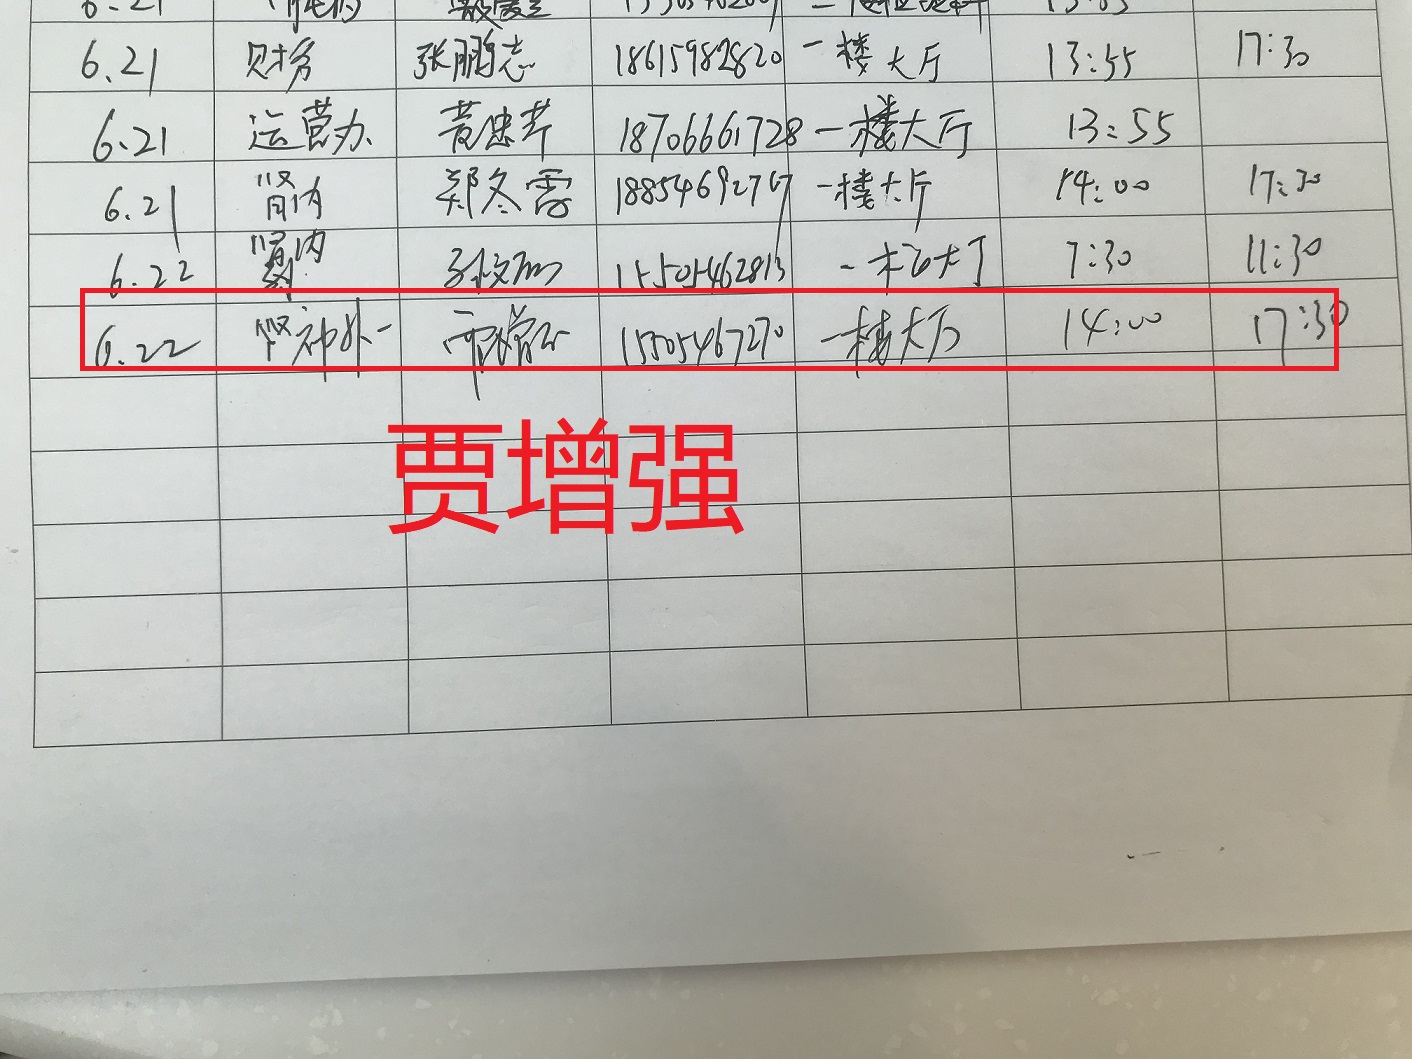 6.21 财务 张鹏志 18615982820 一楼大厅 13:55 17:30
6.21 运营办 黄忠芹 18706661728 一楼大厅 13:55
6.21 肾内 郑冬雪 18854692767 一楼大厅 14:00 17:30
6.22 肾内 15505462813 一楼大厅 7:30 11:30
6.22 神外一 15505467270 一楼大厅 14:00 17:30
贾增强